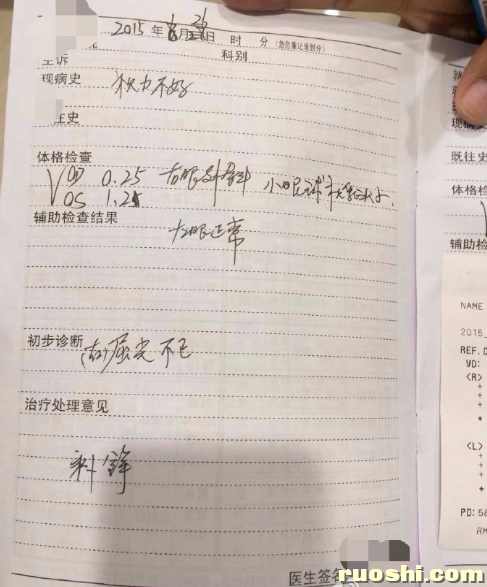 2015年6月26日 时 分 (急危重记录到分)
科别
主诉
现病史 视力不好
往史
体格检查
V OD 0.25 右眼外斜 小眼球
OS 1.25
辅助检查结果 左眼正常
初步诊断 (右)屈光不正
治疗处理意见
医生签名
就
现病史
既往史
体格检
辅助检
NAME
2015_
REF.D
VD:
<R>
+
+
+
+
<L>
+
+
+
+
PD:58
RM
ruoshi.com